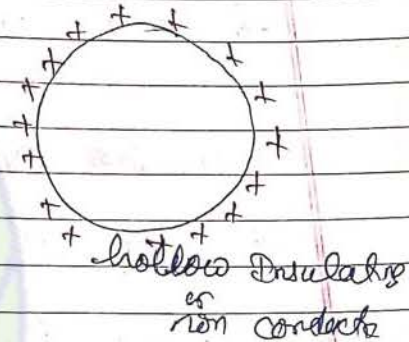 + + + + + + + + + + + + + + + +
hollow Insulating
or
non conductor